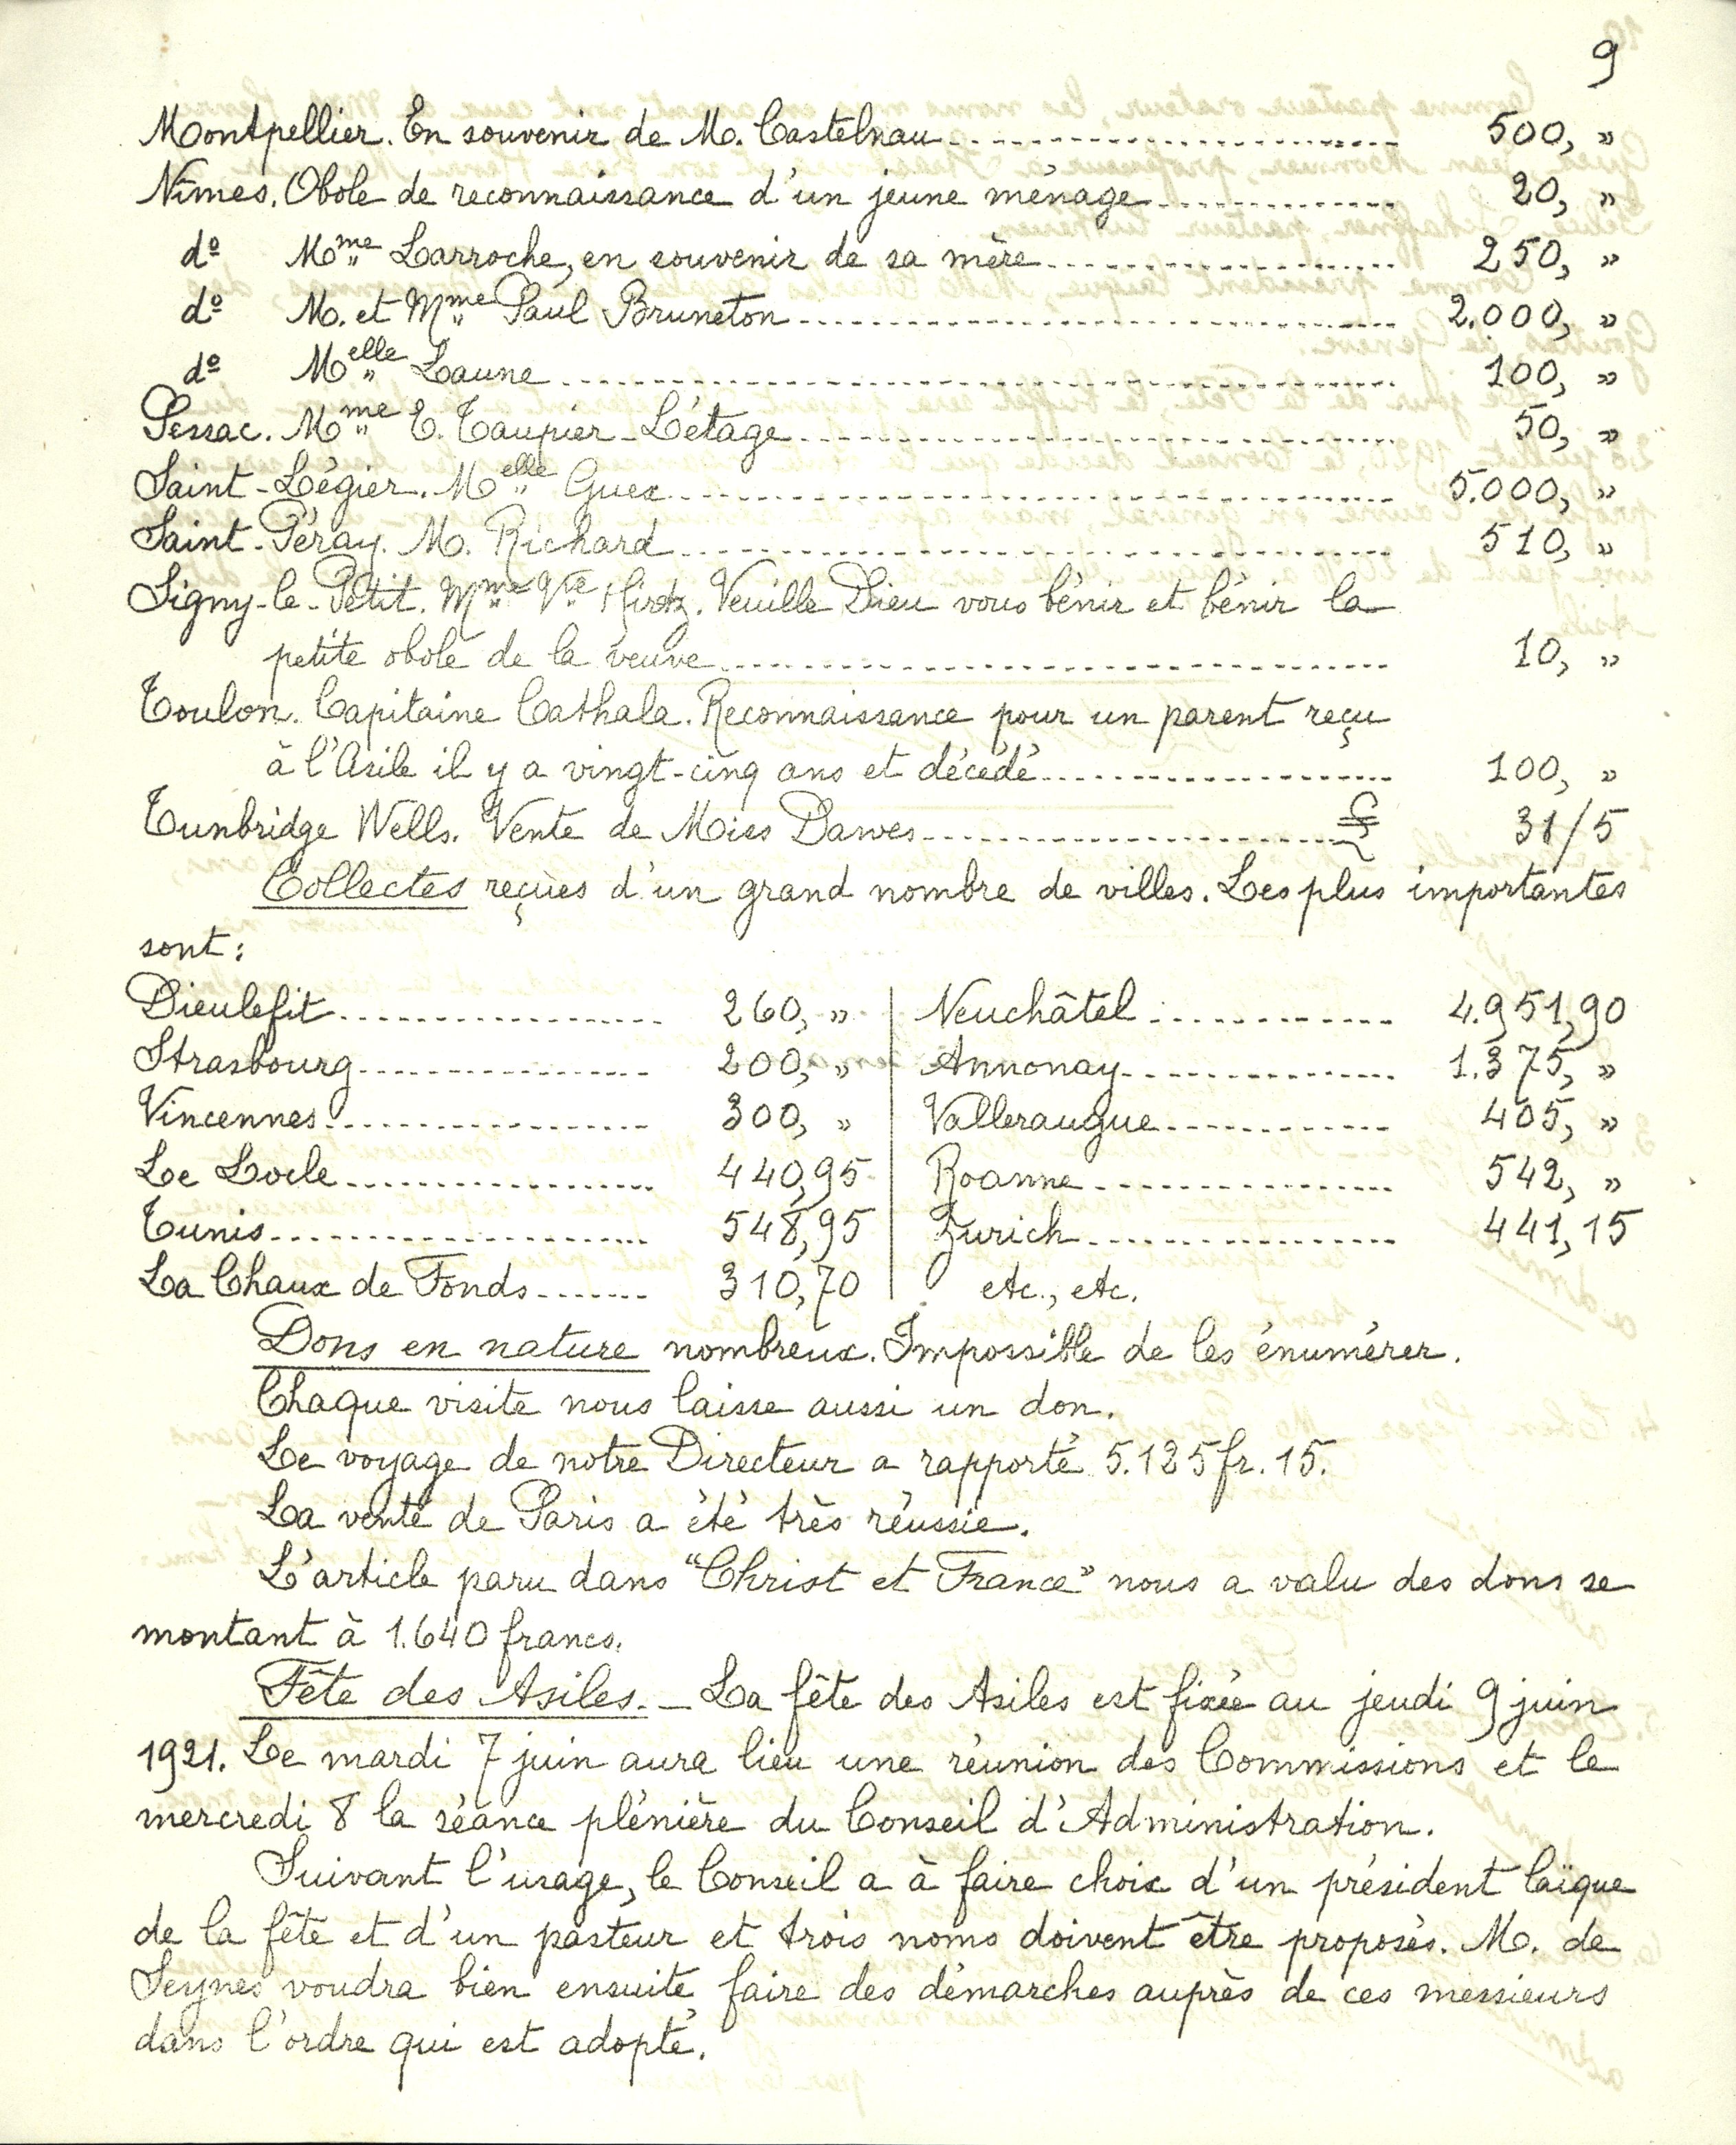 9
Montpellier. En souvenir de M. Castelnau 500, "
Nîmes. Obole de reconnaissance d'un jeune ménage 20, "
do Mme Larroche, en souvenir de sa mère 250, "
do M. et Mme Paul Bruneton 2.000, "
do Melle Laune 100, "
Pessac. Mme E. Taupier-Létage 50, "
Saint-Légier. Melle Guex 5.000, "
Saint-Péray. M. Richard 510, "
Signy-le-Petit. Mme Vve Hirtz. Veuille Dieu vous bénir et bénir la
petite obole de la veuve 10, "
Toulon. Capitaine Cathala. Reconnaissance pour un parent reçu
à l'Asile il y a vingt-cinq ans et décédé 100, "
Tunbridge Wells. Vente de Miss Dawes £ 31/5
Collectes reçues d'un grand nombre de villes. Les plus importantes
sont :
Dieulefit 260, " Neuchâtel 4.951,90
Strasbourg 200, " Annonay 1.375, "
Vincennes 300, " Valleraugue 405, "
Le Locle 440,95 Roanne 542, "
Tunis 548,95 Zurich 441,15
La Chaux de Fonds 310,70 etc., etc.
Dons en nature nombreux. Impossible de les énumérer.
Chaque visite nous laisse aussi un don.
Le voyage de notre Directeur a rapporté 5.125 fr. 15.
La vente de Paris a été très réussie.
L'article paru dans "Christ et France" nous a valu des dons se
montant à 1.640 francs.
Fête des Asiles. — La fête des Asiles est fixée au jeudi 9 juin
1921. Le mardi 7 juin aura lieu une réunion des Commissions et le
mercredi 8 la séance plénière du Conseil d'Administration.
Suivant l'usage, le Conseil a à faire choix d'un président laïque
de la fête et d'un pasteur et trois noms doivent être proposés. M. de
Seynes voudra bien ensuite faire des démarches auprès de ces messieurs
dans l'ordre qui est adopté.